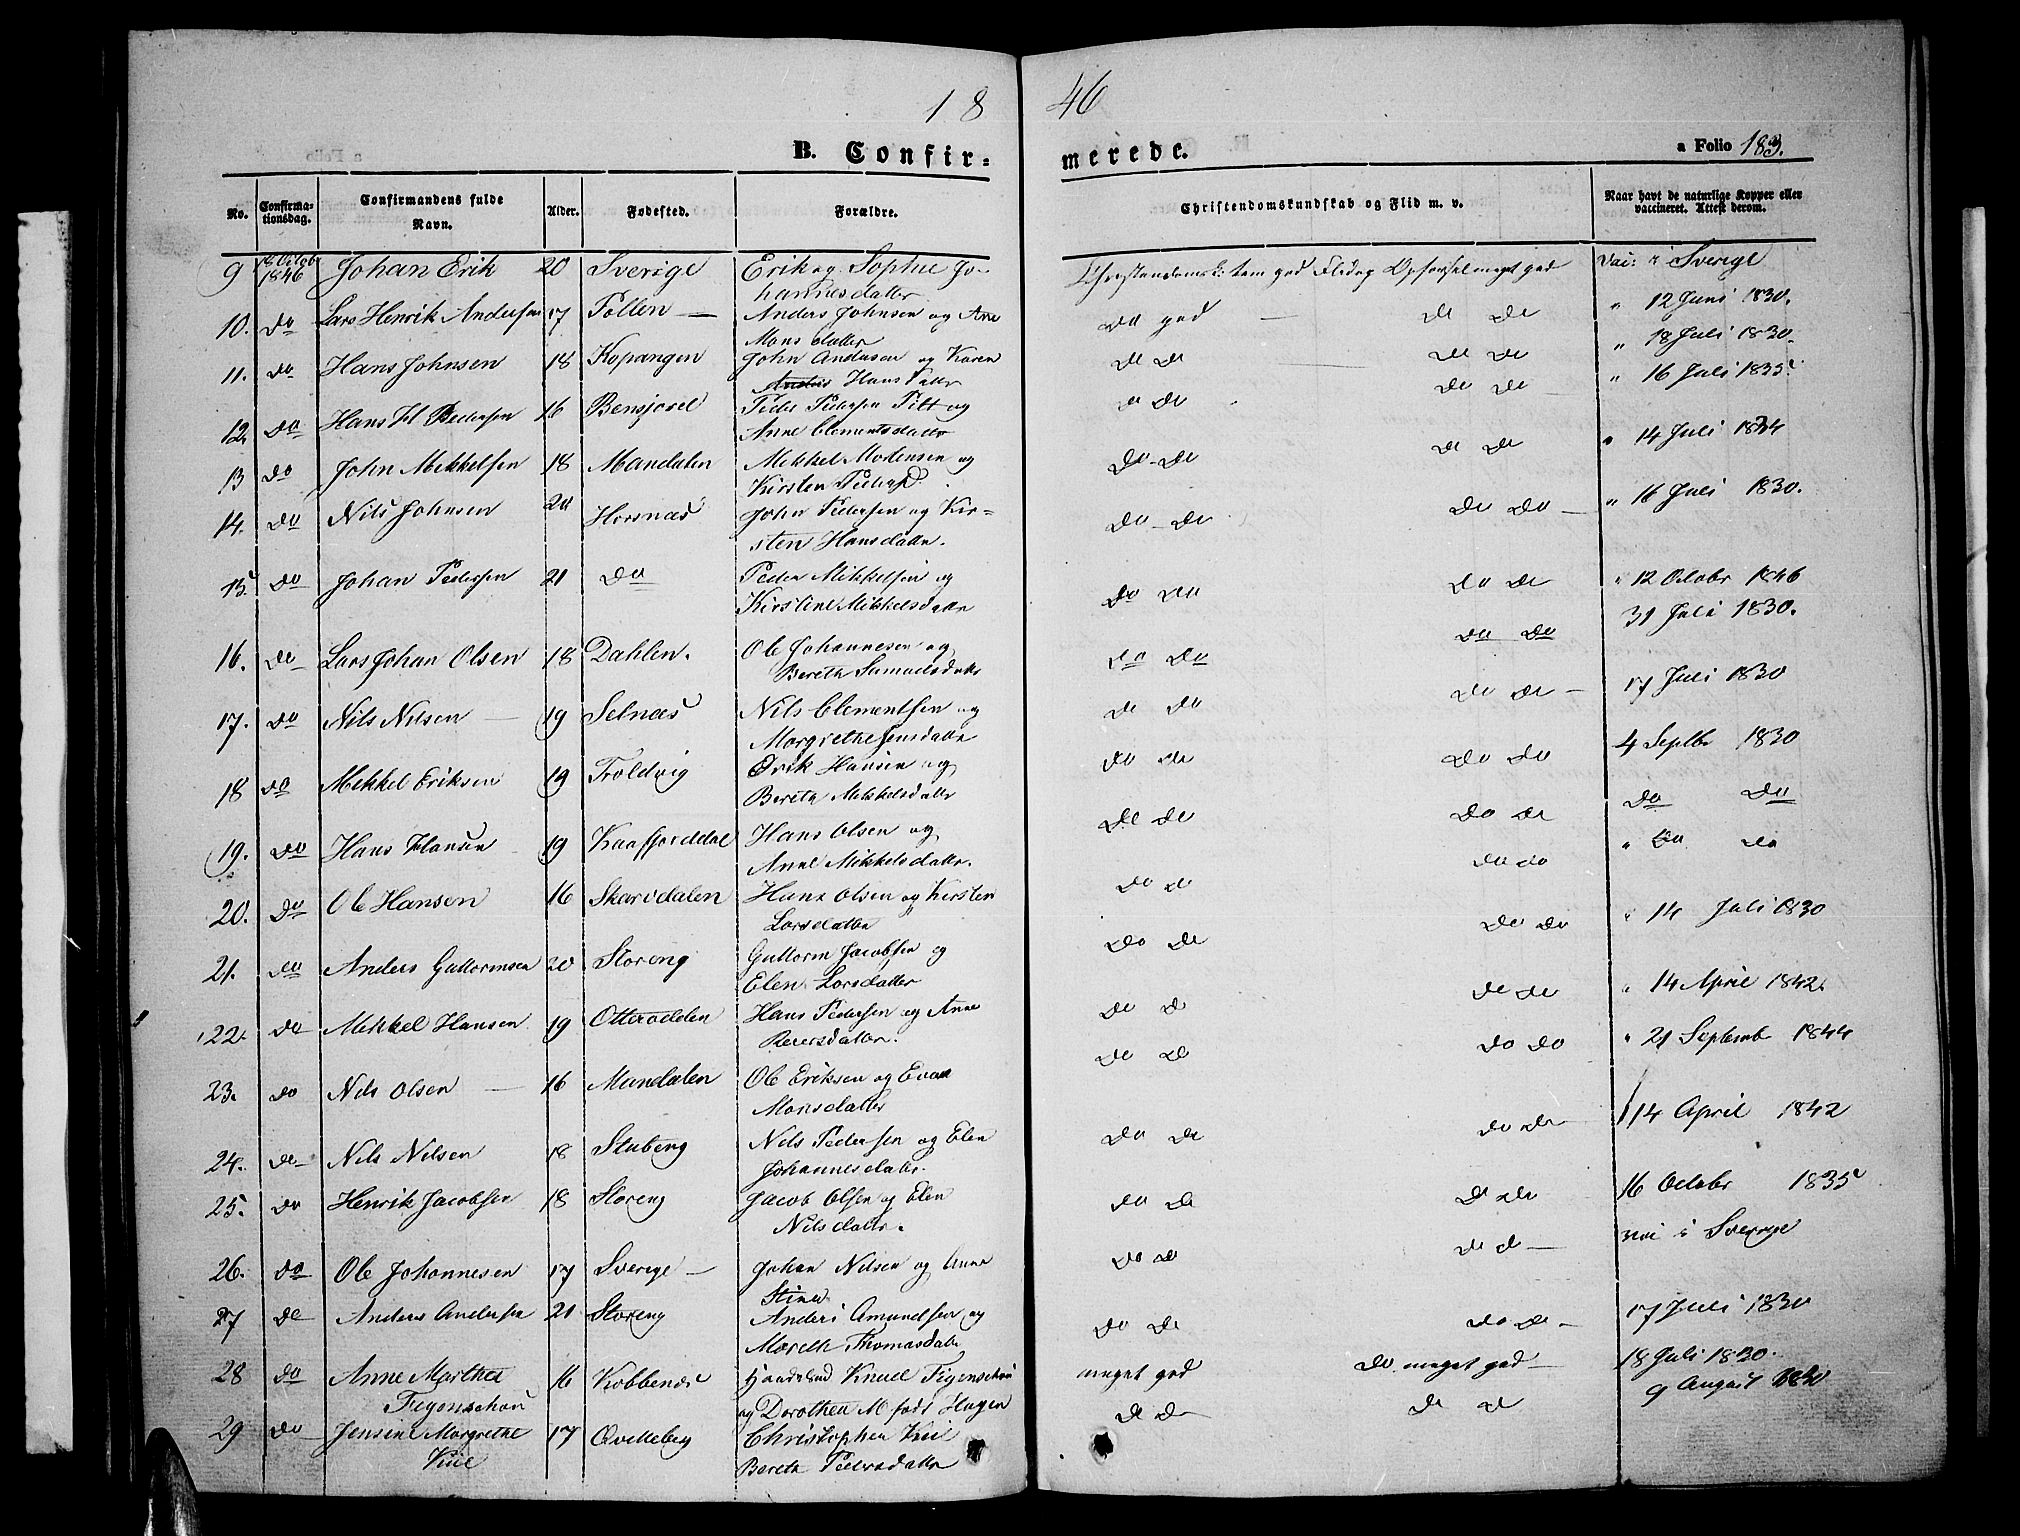 18 46
B. Confirmerede. a Folio 183.
No. Confirmationsdag. Confirmandens fulde Navn. Alder. Fødested. Forældre. Christendomskundskab og Flid m. v. Naar havt de naturlige Kopper eller vaccineret. Attest derom.
9 18 Octob 1846 Johan Erik 20 Sverige Erik og Sophie Johannesdatter Christendomsk: tem god Flid og Opførsel meget god Vac: i Sverige
10. do Lars Henrik Andersen 17 Pollen Anders Johnsen og Ane Monsdatter do god do do " 12 Juni 1830.
11. do Hans Johnsen 18 Kopangen John Andersen og Karen Hansdatter do do do do " 18 Juli 1830.
12. do Hans H Pedersen 16 Bensjoret Peder Pedersen Pitt og Anne Clementsdatter do do do do " 16 Juli 1835
13 do John Mikkelsen 18 Mandalen Mikkel Mortensen og Kirsten Pedersd. do do do do " 14 Juli 1834
14. do Nils Johnsen 20 Horsnæs John Pedersen og Kirsten Hansdatter. do do do do " 16 Juli 1830.
15 do Johan Pedersen 21 do Peder Mikkelsen og Kirstine Mikkelsdatter do do do do " 12 Octobr 1846
16. do Lars Johan Olsen 18 Dahlen. Ole Johannesen og Bereth Samuelsdatter do do do do 31 Juli 1830.
17. do Nils Nilsen 19 Selnæs Nils Clementsen og Margrethe Jensdatter do do do do 17 Juli 1830
18 do Mikkel Eriksen 19 Troldvig Erik Hansen og Bereth Mikkelsdatter do do do do 4 Septbr 1830
19. do Hans Hansen 19 Kaafjorddal Hans Olsen og Anne Mikkelsdatter. do do do do do do
20. do Ole Hansen 16 Skardalen Hans Olsen og Kirsten Larsdatter do do do do " do do
21. do Anders Guttormsen 20 Storeng Guttorm Jacobsen og Elen Larsdatter do do do do " 14 Juli 1830
22. do Mikkel Hansen 19 Otteradden Hans Pedersen og Anne Reiersdatter. do do do do " 14 April 1842.
23. do Nils Olsen 16 Mandalen Ole Eriksen og Eva Monsdatter do do do do " 21 Septemb 1844
24. do Nils Nilsen 18 Stubeng Nils Pedersen og Elen Johannesdatter. do do do do 14 April 1842
25. do Henrik Jacobsen 18 Storeng Jacob Olsen og Elen Nilsdatter. do do do do 16 Octobr 1835
26. do Ole Johannesen 17 Sverige Johan Nilsen og Anna Stina do do do do i Sverige
27 do Anders Andersen 21 Storeng Anders Amundsen og Mareth Thomasdatter do do do do 17 Juli 1830
28 do Anne Martha Figenschou 16 Kobbenæs Handelsmd Knud Figenschou og Dorothea M født Hagen meget god do meget god 18 Juli 1830.
29 do Jensine Margrethe Kiil 17 Qvitteberg Christopher Kiil Bereth Pedersdatter do do do do 9 August